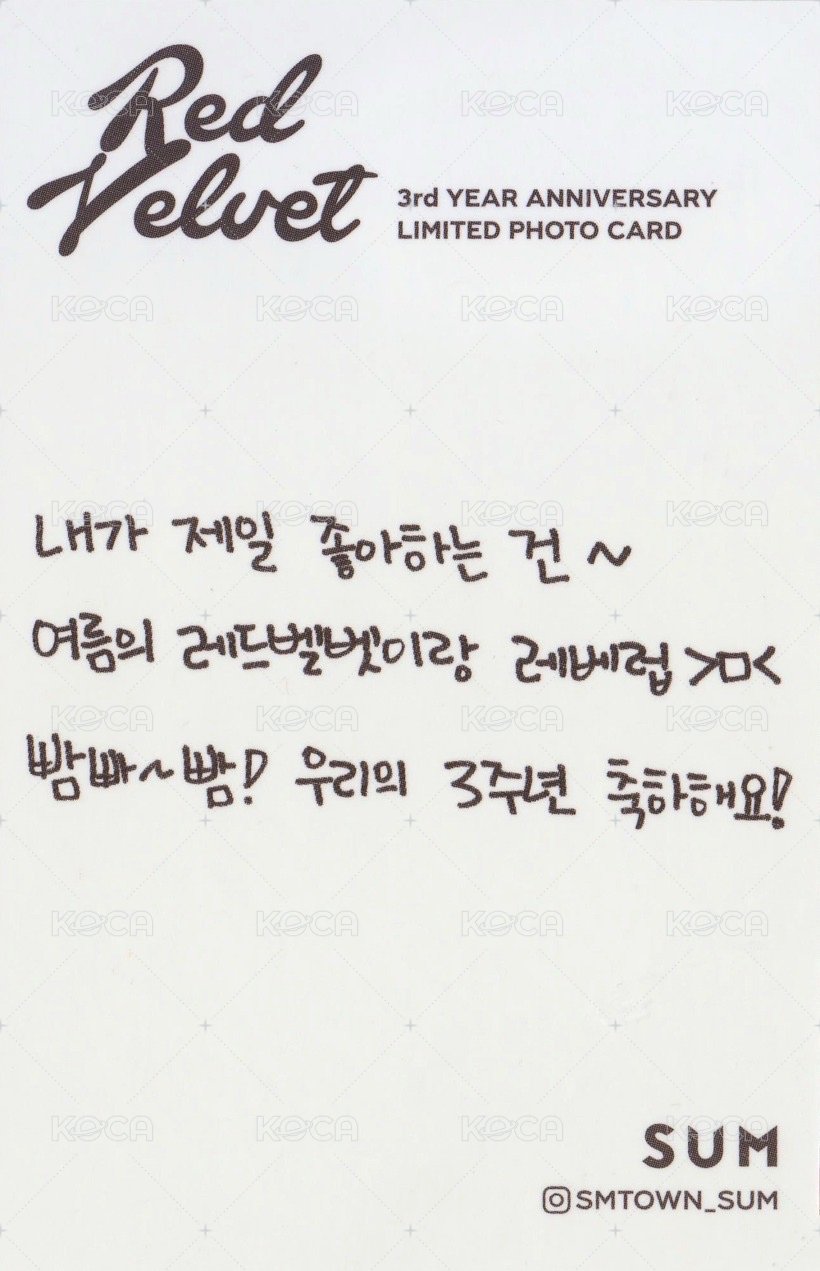 Red
Velvet
3rd YEAR ANNIVERSARY
LIMITED PHOTO CARD
내가 제일 좋아하는 건 ~
여름의 레드벨벳이랑 레베럽 >ㅁ<
빰빠~빰! 우리의 3주년 축하해요!
SUM
SMTOWN_SUM
KOCA